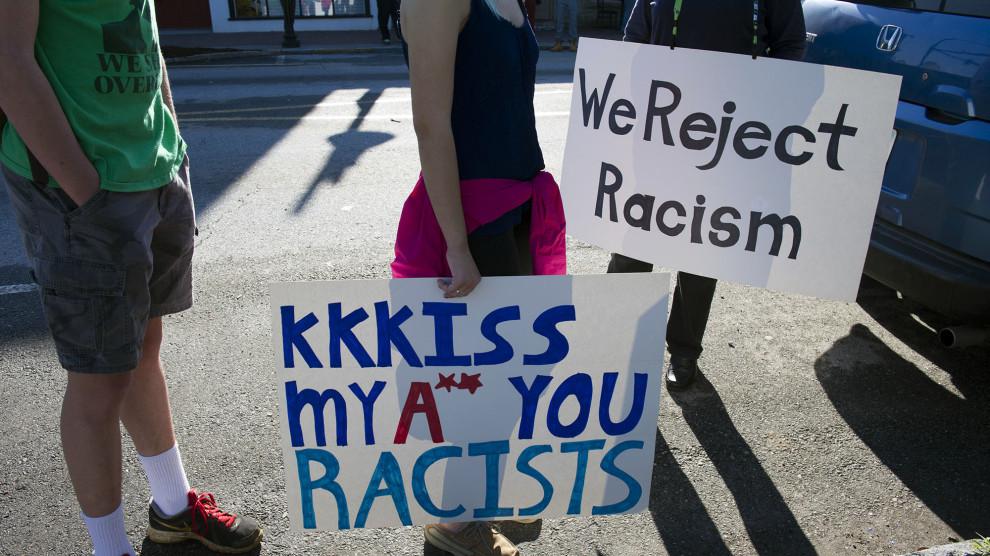 WE S
OVER
We Reject
Racism
KKKISS
MY A** YOU
RACISTS